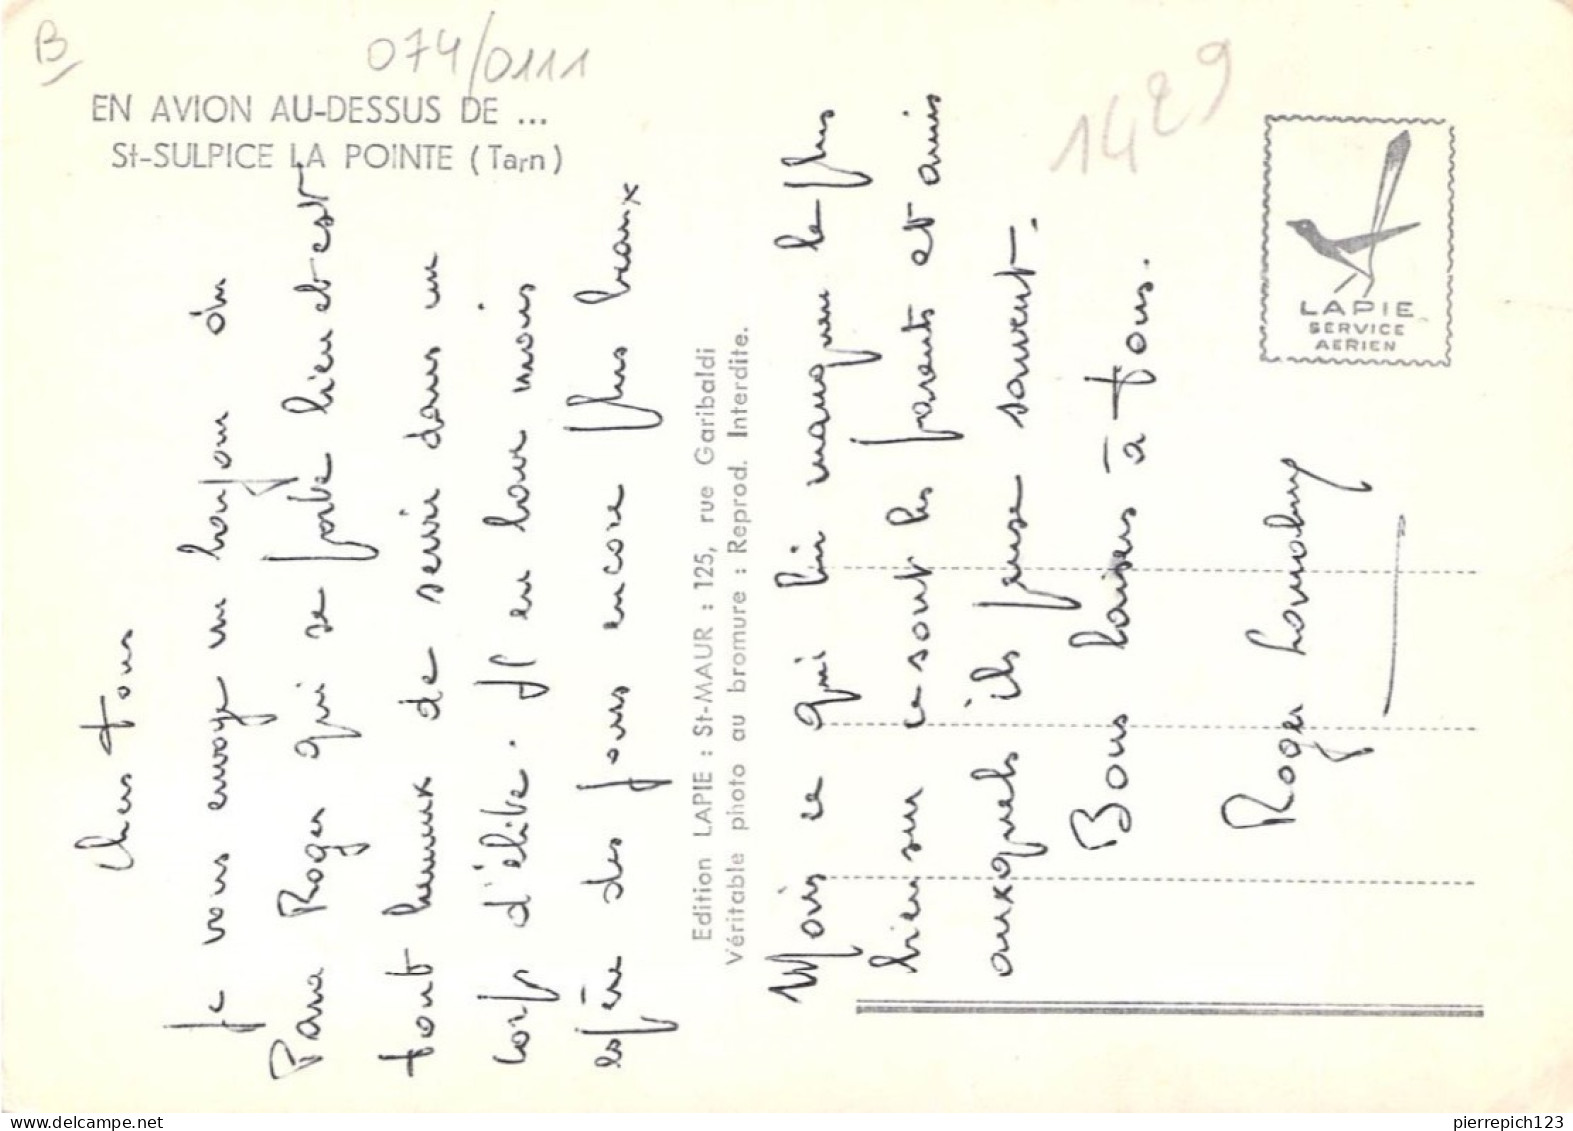 B
074/0111
1429
EN AVION AU-DESSUS DE ...
St-SULPICE LA POINTE (Tarn)
LAPIE
SERVICE
AERIEN
Chers tous
Je vous envoye un bonjour du
Para Roger qui se porte bien et est
tout heureux de servir dans un
corp d'élite. Il en bave mais
espère des jours encore plus beaux
Edition LAPIE : St-MAUR : 125, rue Garibaldi
Véritable photo au bromure : Reprod. Interdite.
Mais ce qui lui manque le plus
bien sur ce sont les parents et amis
auxquels ils pense souvent.
Bons baisers à tous.
Roger
pierrepich123